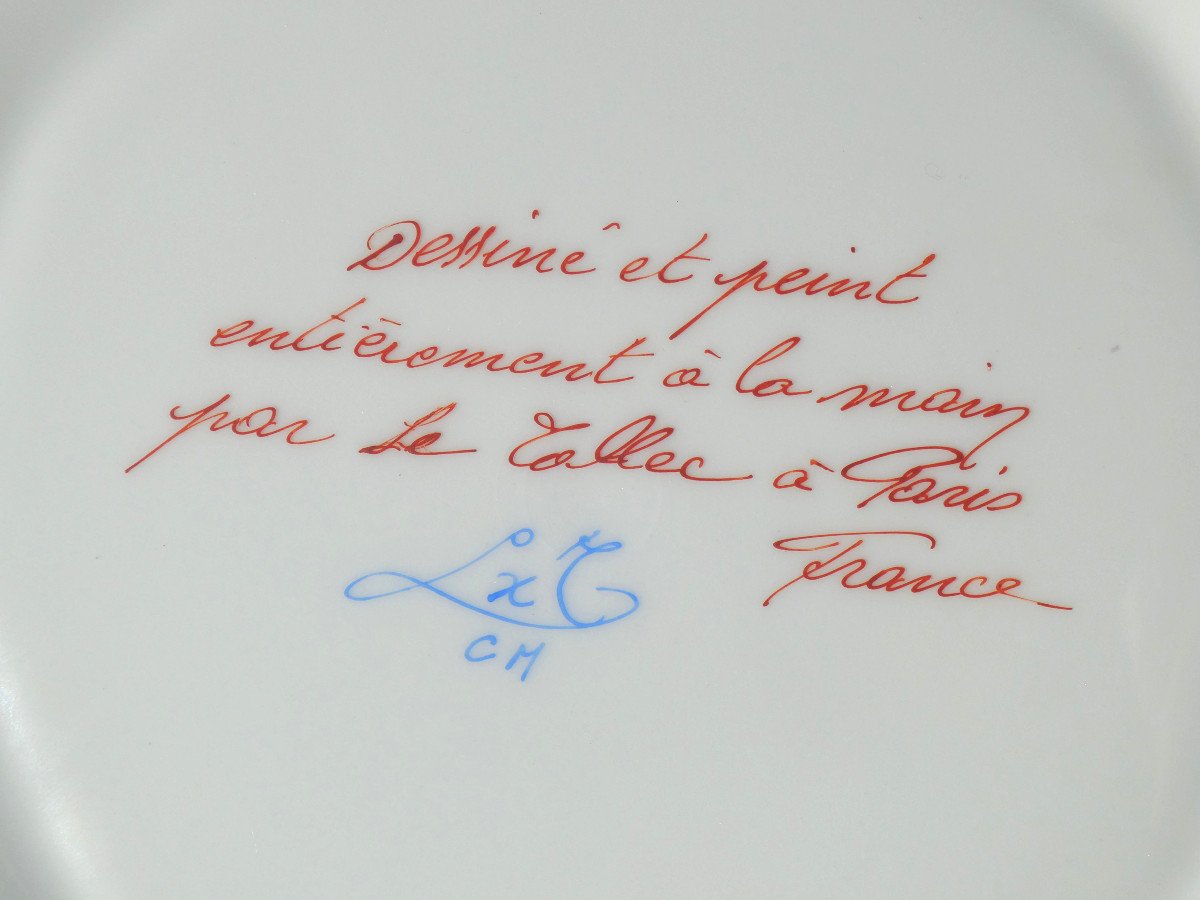 Dessiné et peint
entièrement à la main
par Le Tallec à Paris
France
LxT
CM